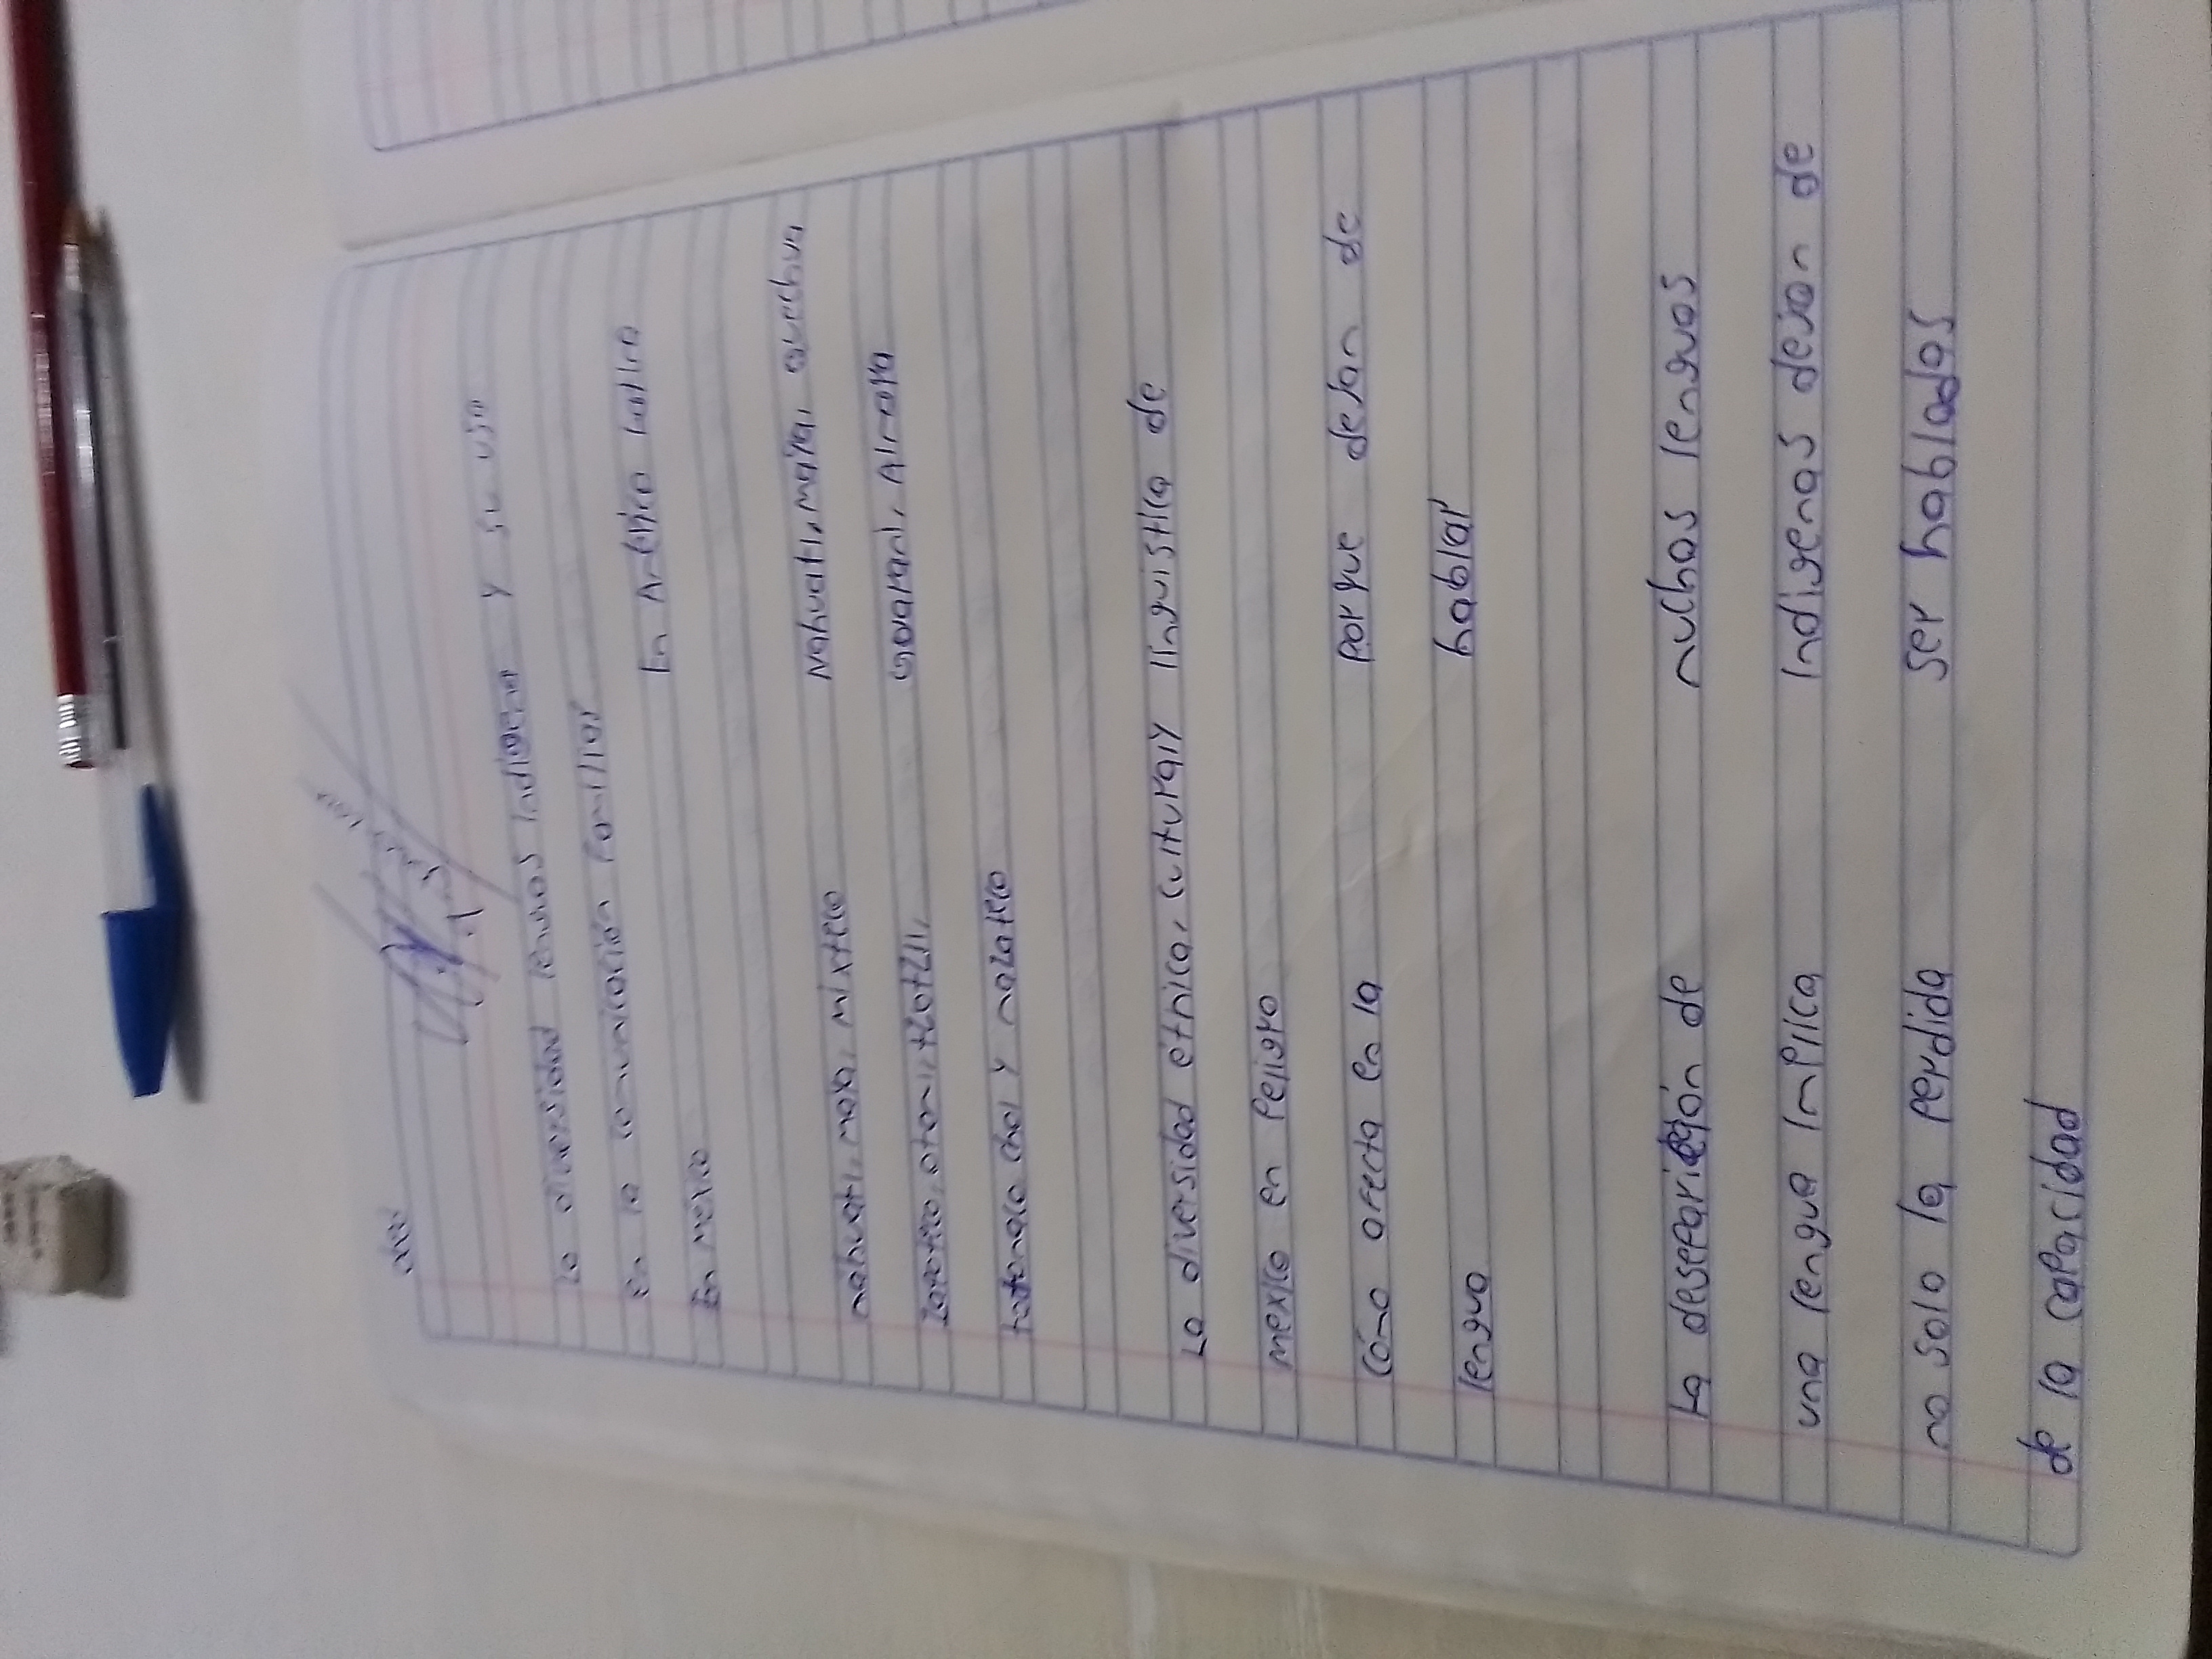 La diversidad lenguas indigena y su uso
En la comunicación familiar
En mexico
En América latina
náhuatl, maya, mixteco
Nahuatl, maya, quechua
zapoteco, otomi, tzotzil,
Guarani, Aimara
totonaco chol y mazateco
La diversidad étnica, cultural y linguistica de
mexico en Peligro
Cómo afecta en la
lengua
Porque dejan de
hablar
La desaparición de
una lengua implica
no solo la perdida
de la capacidad
muchas lenguas
Indigenas dejan de
ser habladas